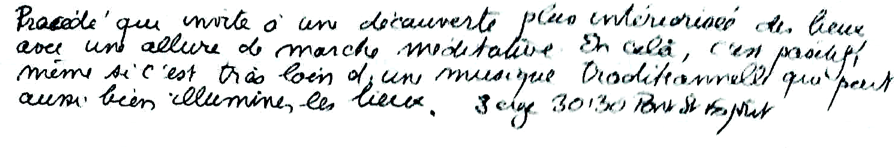 Procédé qui invite à une découverte plus intériorisée des lieux
avec une allure de marche méditative. En celà, c'est positif,
même si c'est très loin d'une musique traditionnelle qui peut
aussi bien illuminer les lieux. Serge 30130 Pont St Esprit